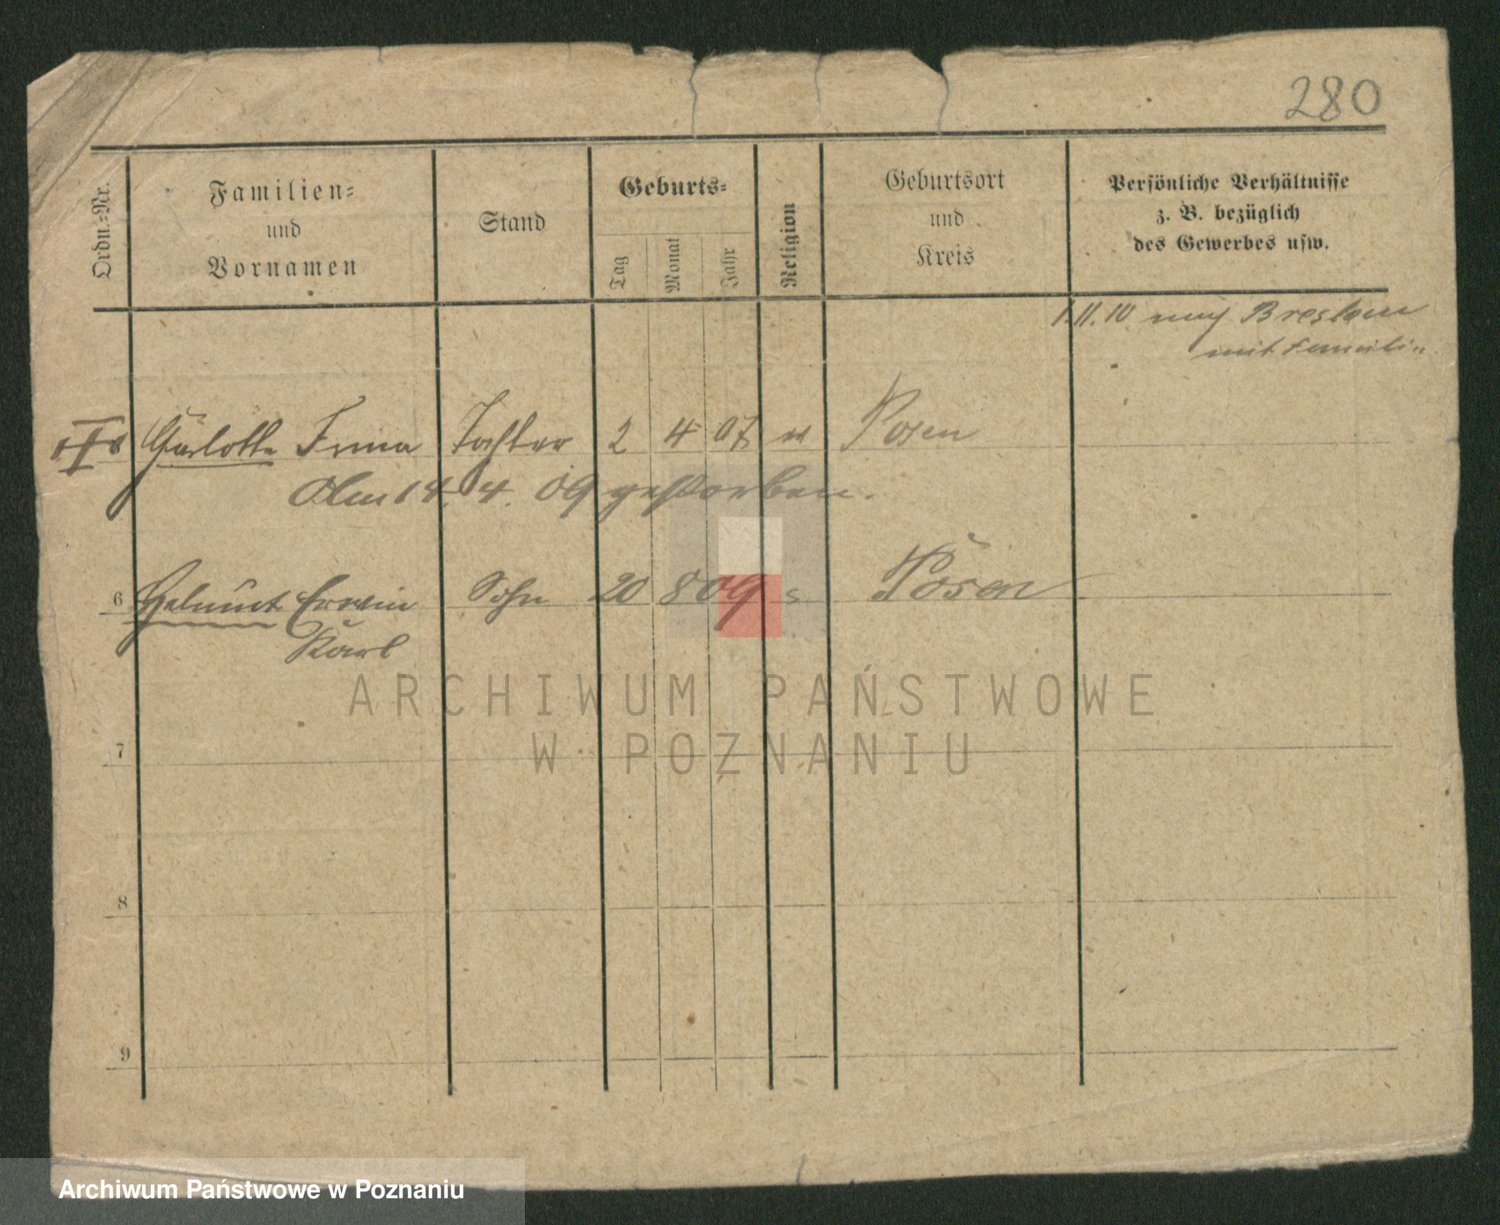 280
Ordn.=Nr.
Familien=
und
Vornamen
Stand
Geburts=
Tag
Monat
Jahr
Religion
Geburtsort
und
Kreis
Persönliche Verhältnisse
z. B. bezüglich
des Gewerbes usw.
1.11.10 nach Breslau
mit Familie
Charlotte Irma Tochter 2 4 07 Posen
Am 14. 4. 09 gestorben.
6 Helmut Erwin Sohn 20 8 09 Posen
Karl
ARCHIWUM PAŃSTWOWE
W POZNANIU
7
8
9
Archiwum Państwowe w Poznaniu